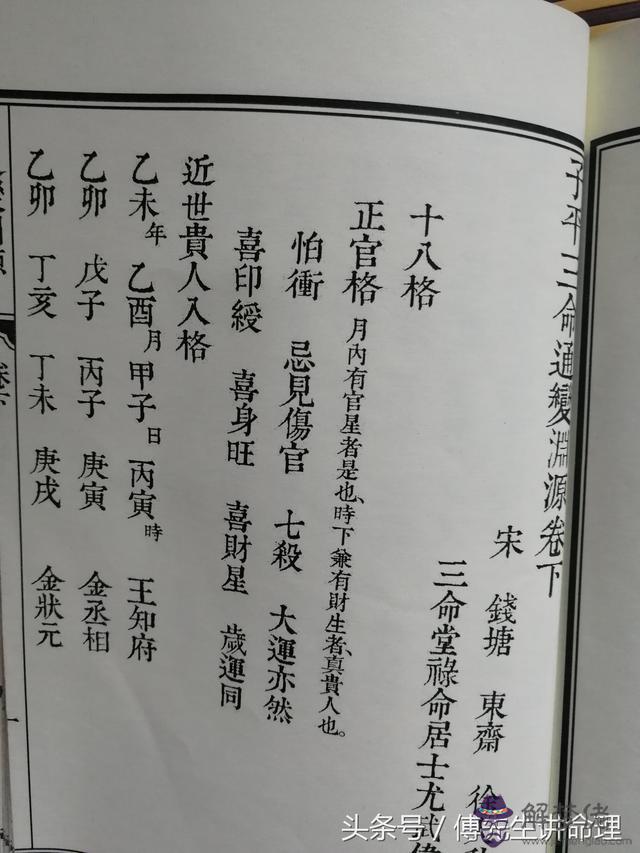 子平三命通變淵源卷下
宋 錢塘 東齋 徐
三命堂祿命居士尤
十八格
正官格 月內有官星者是也、時下兼有財生者、真貴人也。
怕衝 忌見傷官 七殺 大運亦然
喜印綬 喜身旺 喜財星 歲運同
近世貴人入格
乙未年 乙酉月 甲子日 丙寅時 王知府
乙卯 戊子 丙子 庚寅 金丞相
乙卯 丁亥 丁未 庚戌 金狀元
一
解梦佬
头条号/傅先生讲命理